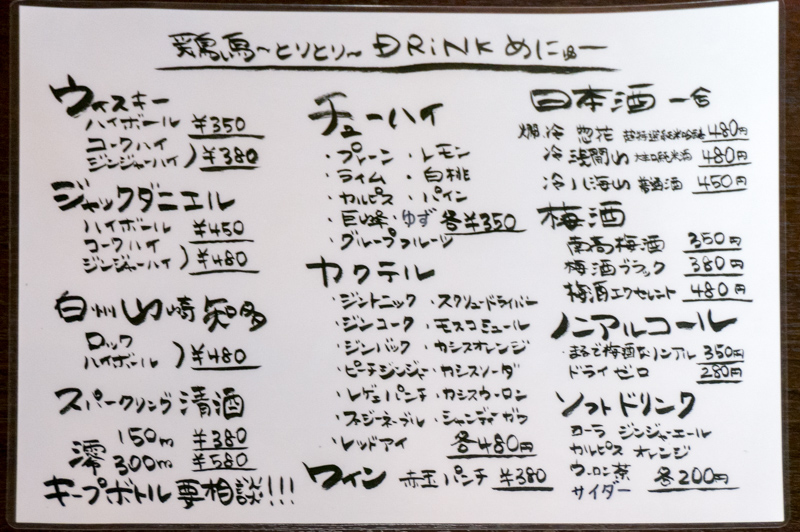 鶏鳥〜とりとり〜 DRiNK めにゅー
ウィスキー
ハイボール ¥350
コークハイ
ジンジャーハイ ) ¥380
ジャックダニエル
ハイボール ¥450
コークハイ
ジンジャーハイ ) ¥480
白州 山崎 知多
ロック
ハイボール ) ¥480
スパークリング清酒
澪 150m ¥380
300m ¥580
キープボトル要相談!!!
チューハイ
・プレーン ・レモン
・ライム ・白桃
・カルピス ・パイン
・巨峰 ・ゆず 各¥350
・グループフルーツ
カクテル
・ジントニック ・スクリュードライバー
・ジンコーク ・モスコミュール
・ジンバック ・カシスオレンジ
・ピーチジンジャー ・カシスソーダ
・レゲェパンチ ・カシスウーロン
・ファジーネーブル ・シャンディーガフ
・レッドアイ 各480円
ワイン 赤玉パンチ ¥380
日本酒 一合
燗 冷 惣花 480円
冷 浅間山 純米酒 480円
冷 八海山 普通酒 450円
梅酒
南高梅酒 350円
梅酒ブラック 380円
梅酒エクセレント 480円
ノンアルコール
まるで梅酒なノンアル 350円
ドライゼロ 280円
ソフトドリンク
コーラ ジンジャーエール
カルピス オレンジ
ウーロン茶 各200円
サイダー